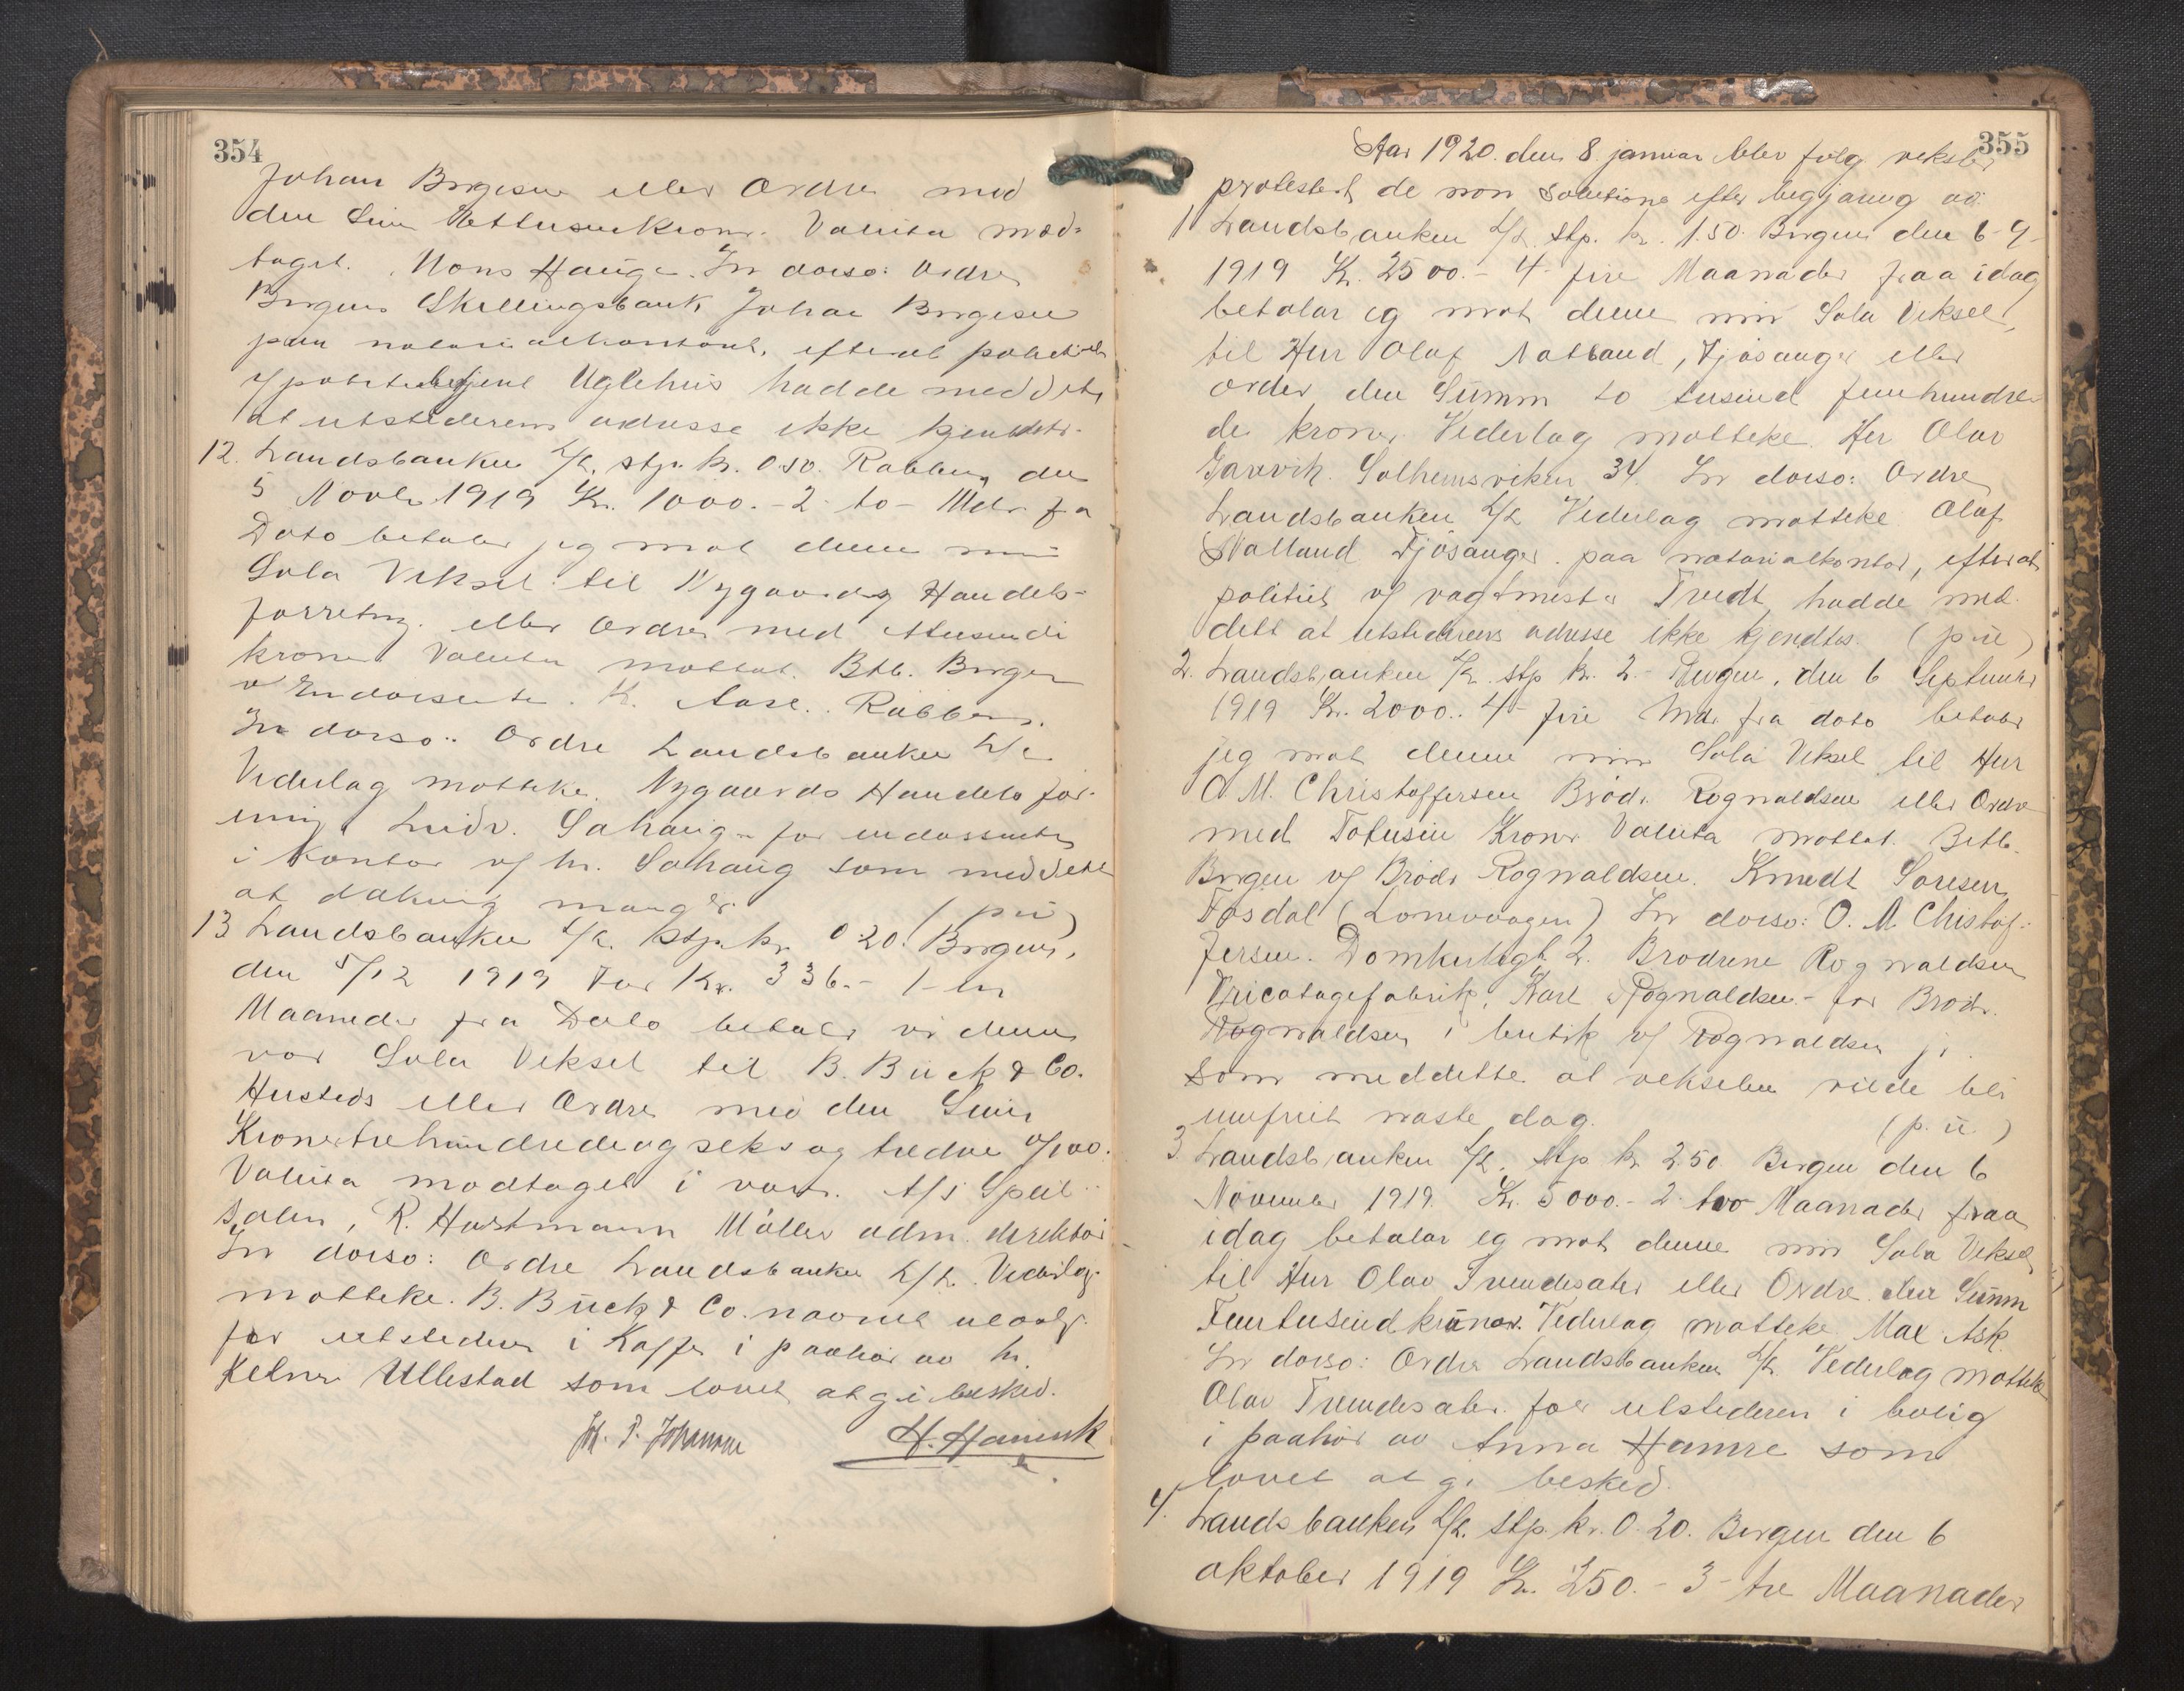 354
Johan Borgesen eller Ordre med
den Sum Ettusenkroner. Valuta mod-
taget. Mons Hauge. In dorso: Ordre
Bergens Skillingsbank Johan Borgesen
paa notarialkontoret, efterat politiet
v/ politibetjent Uglehus hadde meddelt
at utstederens adresse ikke kjendtes.
12. Landsbanken L/L, stp. kr. 0.50. Rabben, den
5 Novbr 1919 Kr. 1000.- 2 to - Mdr. fra
Dato betaler jeg mot denne min
Sola Veksel til Nygaards Handels-
forretng. eller Ordre med ettusende
kroner Valuta mottat. Btb. Bergen
v Endorsenten. K. Aase. Rabben.
In dorso: Ordre Landsbanken L/L
Vederlag motteke. Nygaards Handelsfor-
ening Ludv. Sahaug - for endossenten
i Kontor v/ hr. Sahaug som meddelte
at dækning mangler. (p ü)
13 Landsbanken L/L. stp. kr. 0.20. Bergen,
den 5/12 1919 For Kr. 336.- 1- en
Maaneder fra Dato betaler vi denne
vor Sola Veksel til B. Bück & Co.
Husteds eller Ordre med den Sum
Kroner trehundredeogseksogtredve 0/100.
Valuta modtaget i varer. A/S Speil-
salen, R. Horstmann Möller adm. direktör
In dorso: Ordre Landsbanken L/L. Vederlag
motteke. B. Bück & Co. navnet
for utstederen i Kaffe i paahør av hr.
Kelner Ullestad som lovet at gi besked.
Joh. P. Johannesen H. Hamink
355
Aar 1920. den 8. januar blev følg veksler
protestert de non solutione efter begjæring av:
1. Landsbanken L/L. stp. kr. 1.50. Bergen den 6-9-
1919 Kr. 2500.- 4- fire Maanader fraa idag
betalar eg mot denne min Sola Veksel,
til Herr Olaf Natland, Fjösanger eller
order den Summ to tusind femhundre-
de kroner. Vederlag motteke. Her Olav
Garvik. Solheimsviken 34. In dorso: Ordre
Landsbanken L/L Vederlag motteke Olaf
Natland Fjösanger. paa notarialkontor, efterat
politiet v/ vagtmester Tvedt hadde med-
delt at utstederens adresse ikke kjendtes. (p ü)
2. Landsbanken L/L. stp kr. 2.- Bergen, den 6 September
1919 Kr. 2000.. 4- fire Mdr. fra dato betaler
jeg mot denne min Sola Veksel til Herr
O. M. Christoffersen Brödr. Rognvaldsen eller Ordre
med Totusin Kroner Valuta mottat. Betb.
Bergen v/ Brödr Rognvaldsen. Knudt Soresen
Fosdal (Lonevaagen) In dorso: O. M. Chistof-
fersen. Domkirkegt. 2. Brødrene Rognvaldsen
Tricotagefabrik. Karl Rognvaldsen - for Brødr.
Rognvaldsen i butik v/ Rognvaldsen jr.
som meddelte at vekselen vilde bli
innfriet næste dag. (p. ü.)
3. Landsbanken L/L. stp kr 2.50 Bergen den 6
November 1919. Kr. 5000.- 2 tvo Maanader fraa
idag betalar eg mot denne min Sola Veksel
til Herr Olav Tvendesater eller Ordre den Summ
Femtusind krunor. Vederlag motteke Mal Ask.
In dorso: Ordre Landsbanken L/L Vederlag motteke
Olav Tvendesater. for utstederen i bolig
i paahør av Anna Hamre som
lovet at gi besked.
4. Landsbanken L/L. stp. kr. 0.20. Bergen den 6
oktober 1919 Kr. 250.- 3- tre Maanader